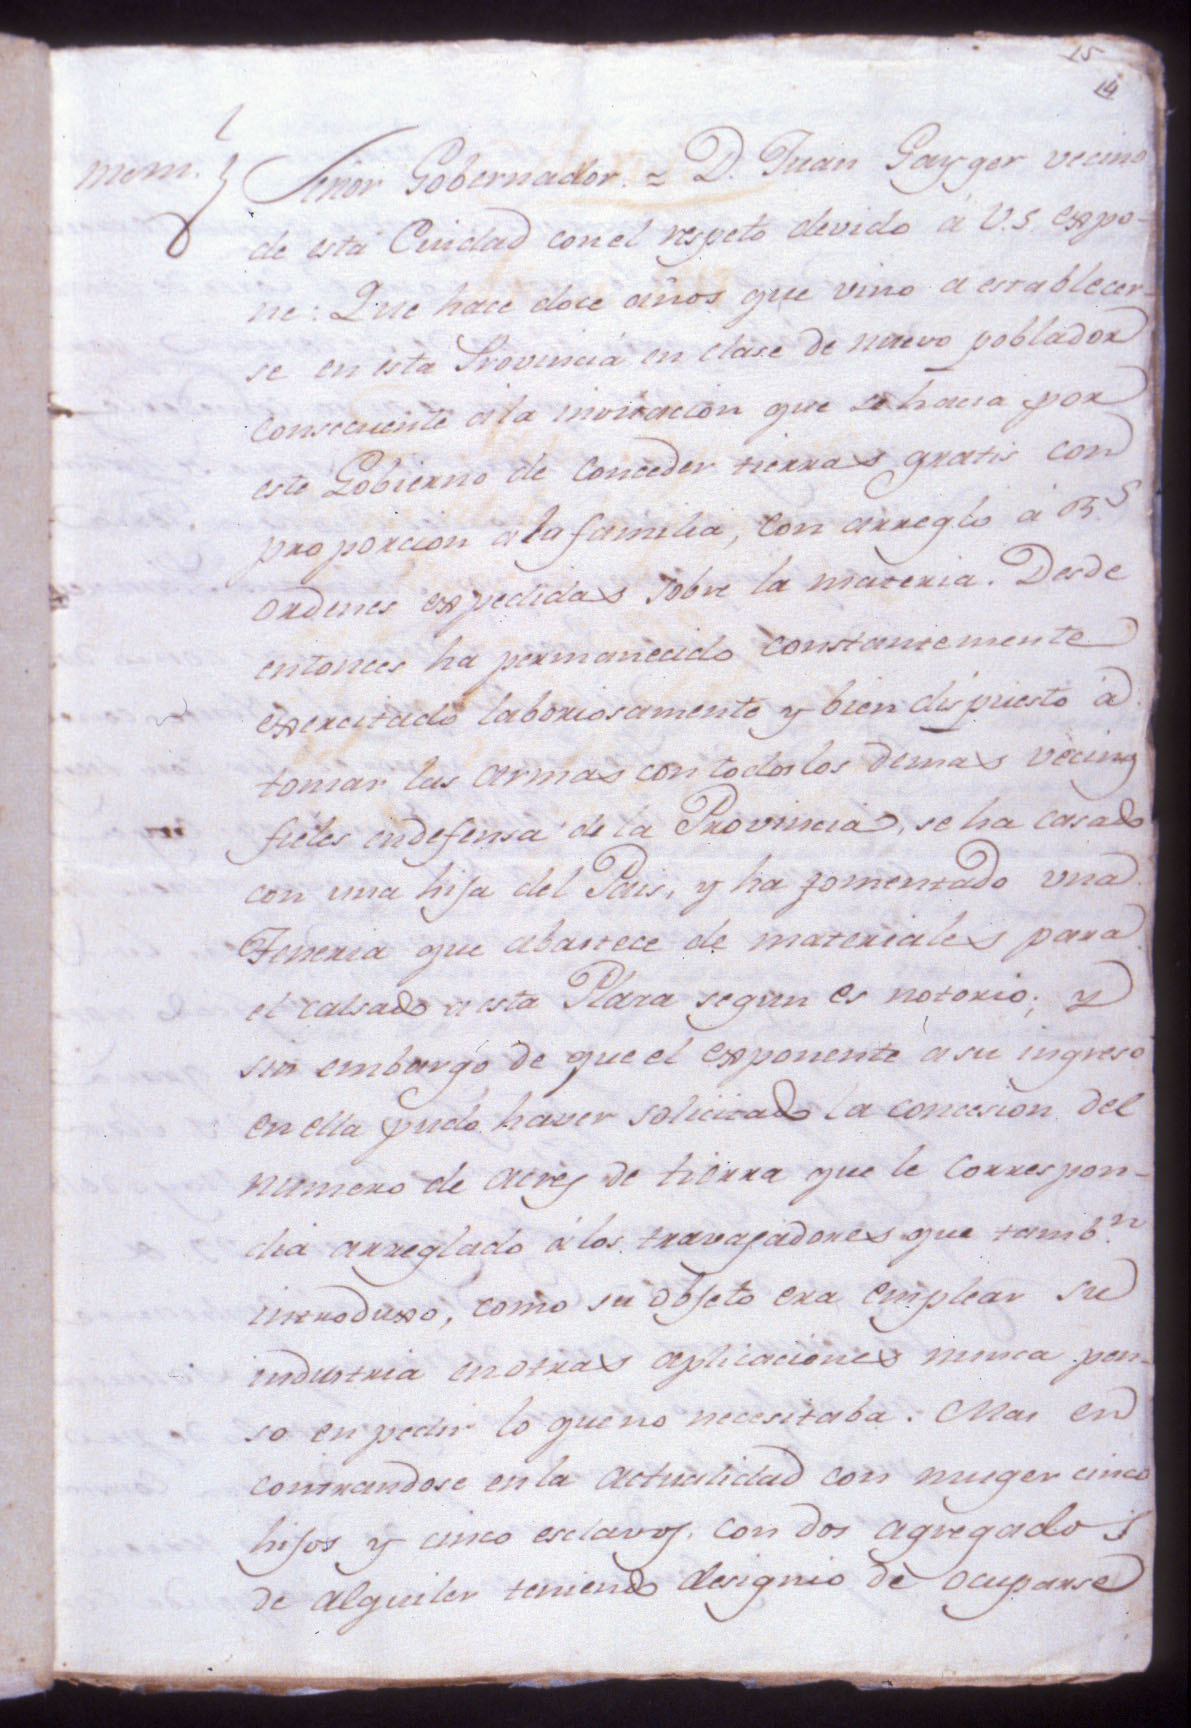 15
14
mem.l
Señor Gobernador. = D. Juan Gayger vecino
de esta Ciudad con el respeto devido á V.S. expo-
ne: Que hace doce años que vino a establecer-
se en esta Provincia en clase de nuevo poblador
consecuente a la invitacion que se hacia por
este Gobierno de conceder tierras gratis con
proporcion a la familia, con arreglo á R.s
ordenes expedidas sobre la materia. Desde
entonces ha permanecido constantemente
exercitado laboriosamente y bien dispuesto á
tomar las armas con todos los demas vecinos
fieles en defensa de la Provincia, se ha casado
con una hija del Pais, y ha fomentado una
Teneria que abastece de materiales para
el calsado a esta Plaza segun es notorio; y
sin embargo de que el exponente á su ingreso
en ella pudo haver solicitado la concesion del
numero de acres de tierra que le correspon-
dia arreglado á los travajadores que tamb.n
introduxo, como su objeto era emplear su
industria en otras aplicaciones nunca pen-
so en pedir lo que no necesitaba. Mas en
contrandose en la actualidad con muger cinco
hijos y cinco esclavos, con dos agregados
de alquiler teniendo designio de ocuparse